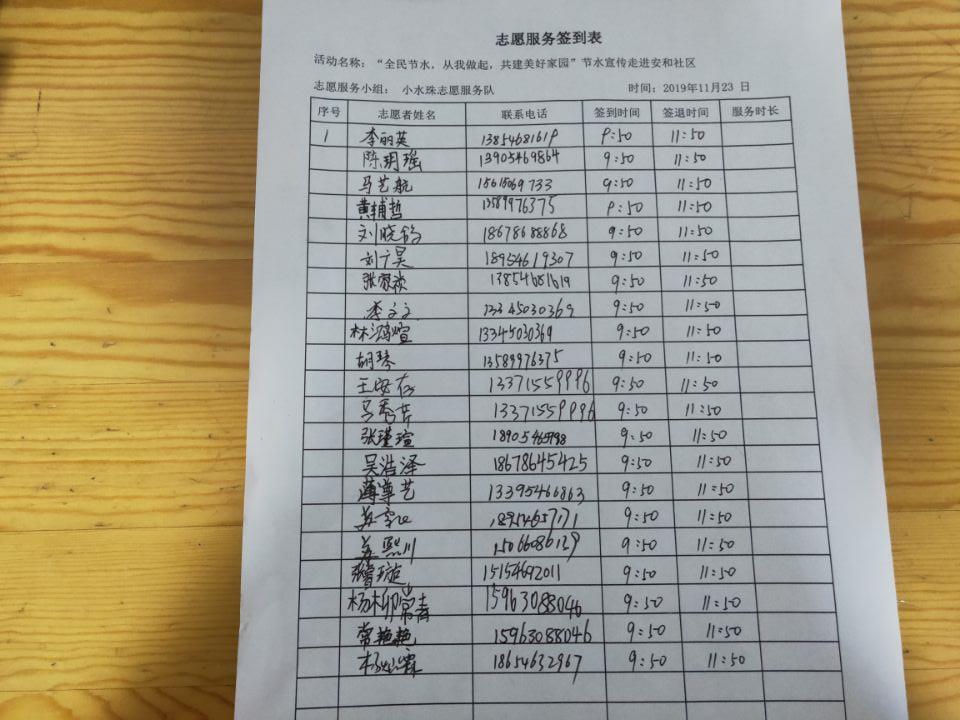 志愿服务签到表
活动名称：“全民节水，从我做起，共建美好家园”节水宣传走进安和社区
志愿服务小组： 小水珠志愿服务队 时间：2019年11月23 日
序号 志愿者姓名 联系电话 签到时间 签退时间 服务时长
1 李丽英 13854681619 9:50 11:50
陈玥瑶 13905469864 9:50 11:50
马艺航 15615069733 9:50 11:50
黄辅哲 13589976375 9:50 11:50
刘晓 18678688868 9:50 11:50
刘广昊 18954619307 9:50 11:50
张家祯 13854681619 9:50 11:50
李文文 13345030369 9:50 11:50
林鸿煊 13345030369 9:50 11:50
胡琴 13589976375 9:50 11:50
王 13371559996 9:50 11:50
马秀芹 13371559996 9:50 11:50
张瑾瑄 9:50 11:50
吴浩泽 18678645425 9:50 11:50
薄尊艺 13395466863 9:50 11:50
苏 18954657171 9:50 11:50
苏熙川 15066086129 9:50 11:50
璇 15154692011 9:50 11:50
杨柳常青 15963088046 9:50 11:50
常艳艳 15963088046 9:50 11:50
杨 霖 18654632967 9:50 11:50